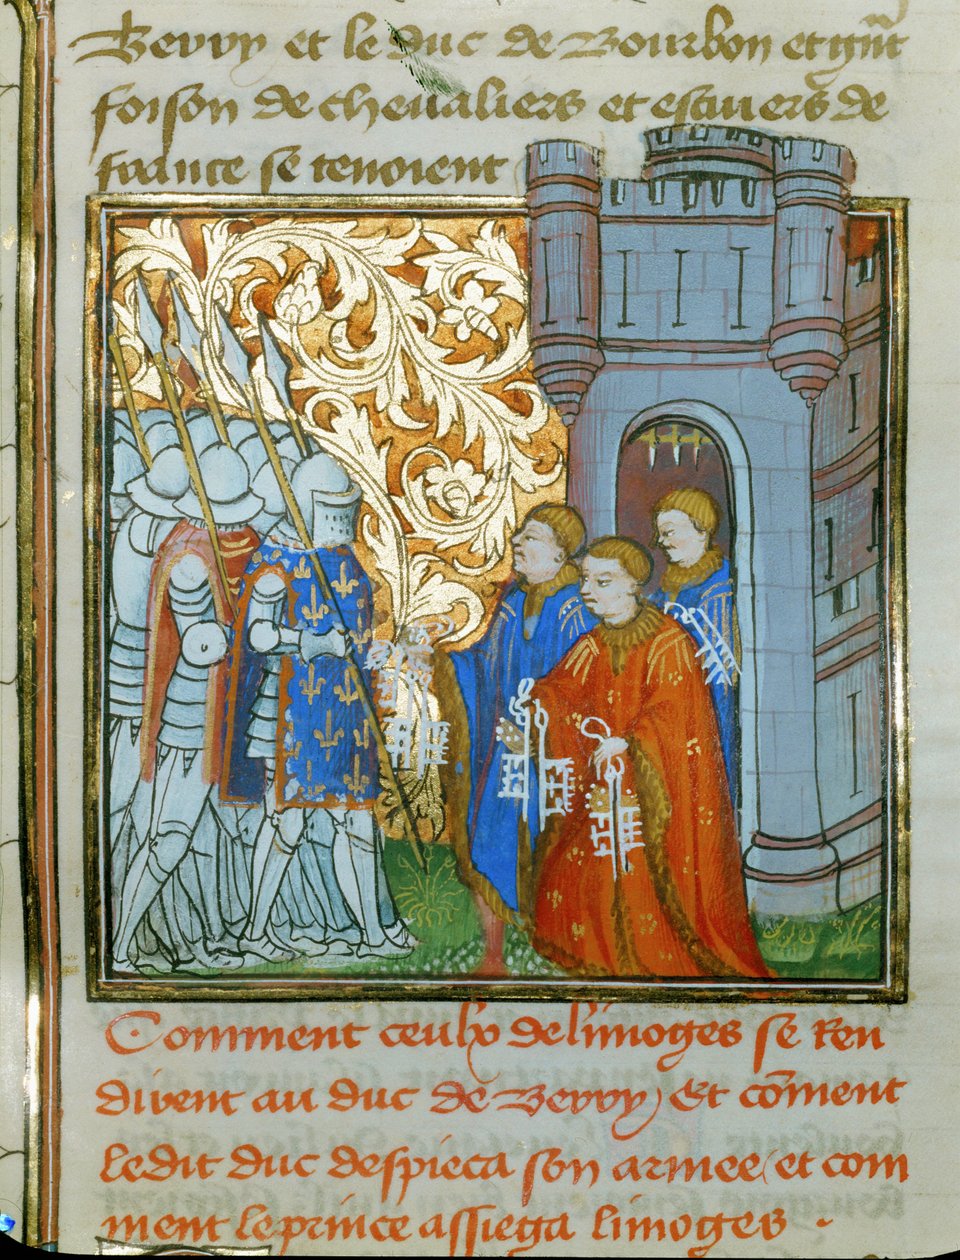 Berry et le duc de Bourbon et grāt
foison de chevaliers et escuiers de
france se tenoient
Comment ceulx de limoges se ren
dirent au duc de Berry Et cōment
ledit duc despieca son armee et com
ment le prince assiega limoges.